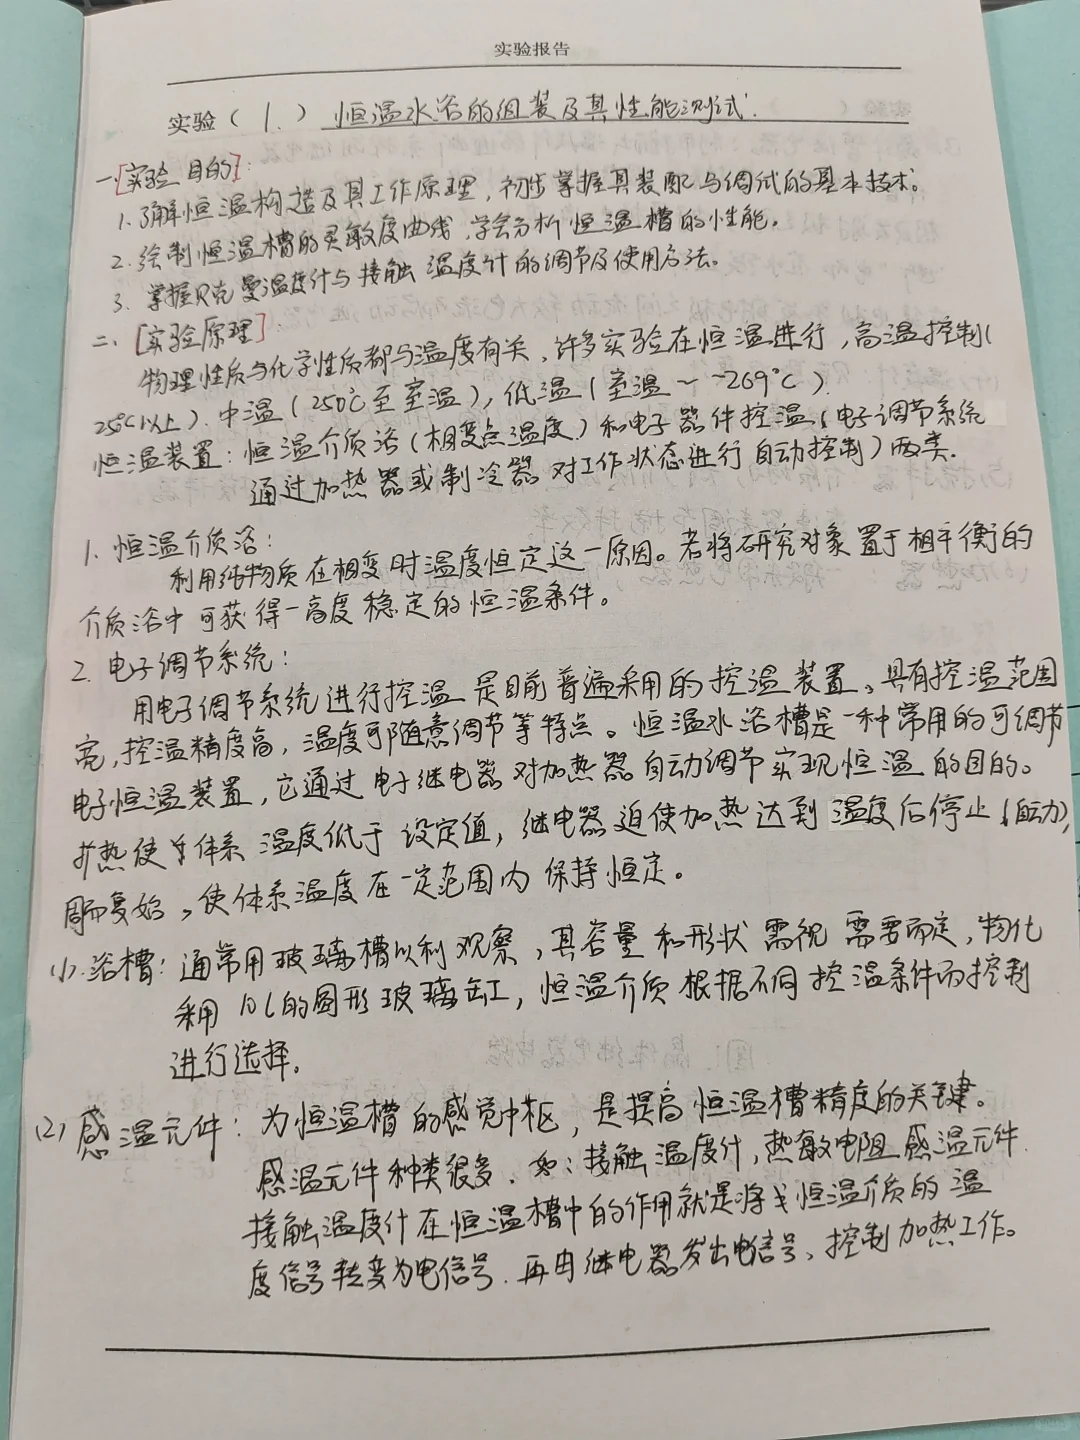 实验报告
实验（ 1. ） 恒温水浴的组装及其性能测试.
一.[实验目的]:
1. 了解恒温构造及其工作原理，初步掌握其装配与调试的基本技术。
2. 绘制恒温槽的灵敏度曲线，学会分析恒温槽的性能。
3. 掌握贝克曼温度计与接触温度计的调节及使用方法。
二. [实验原理].
物理性质与化学性质都与温度有关，许多实验在恒温进行，高温控制(
250℃以上). 中温(250℃至室温)，低温(室温~ -269℃).
恒温装置: 恒温介质浴(相变点温度)和电子器件控温(电子调节系统
通过加热器或制冷器对工作状态进行自动控制)两类.
1. 恒温介质浴:
利用纯物质在相变时温度恒定这一原因。若将研究对象置于相平衡的
介质浴中可获得一高度稳定的恒温条件。
2. 电子调节系统:
用电子调节系统进行控温是目前普遍采用的控温装置。具有控温范围
宽,控温精度高，温度可随意调节等特点。恒温水浴槽是一种常用的可调节
电子恒温装置，它通过电子继电器对加热器自动调节实现恒温的目的。
扩热使体系温度低于设定值，继电器迫使加热达到温度后停止(自动),
周而复始，使体系温度在一定范围内保持恒定。
(1). 浴槽: 通常用玻璃槽以利观察，其容量和形状需视需要而定，物化
采用10L的圆形玻璃缸，恒温介质根据不同控温条件而控制
进行选择.
(2) 感温元件: 为恒温槽的感觉中枢，是提高恒温槽精度的关键。
感温元件种类很多. 如: 接触温度计，热敏电阻感温元件.
接触温度计在恒温槽中的作用就是将恒温介质的温
度信号转变为电信号. 再由继电器发出电信号、控制加热工作。